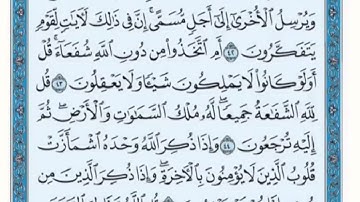 وَيُرْسِلُ ٱلْأُخْرَىٰٓ إِلَىٰٓ أَجَلٍ مُّسَمًّى ۚ إِنَّ فِى ذَٰلِكَ لَءَايَٰتٍ لِّقَوْمٍ
يَتَفَكَّرُونَ ٤٢ أَمِ ٱتَّخَذُوا۟ مِن دُونِ ٱللَّهِ شُفَعَآءَ ۚ قُلْ
أَوَلَوْ كَانُوا۟ لَا يَمْلِكُونَ شَيْـًٔا وَلَا يَعْقِلُونَ ٤٣ قُل
لِّلَّهِ ٱلشَّفَٰعَةُ جَمِيعًا ۖ لَّهُۥ مُلْكُ ٱلسَّمَٰوَٰتِ وَٱلْأَرْضِ ۖ ثُمَّ
إِلَيْهِ تُرْجَعُونَ ٤٤ وَإِذَا ذُكِرَ ٱللَّهُ وَحْدَهُ ٱشْمَأَزَّتْ
قُلُوبُ ٱلَّذِينَ لَا يُؤْمِنُونَ بِٱلْءَاخِرَةِ ۖ وَإِذَا ذُكِرَ ٱلَّذِينَ مِن